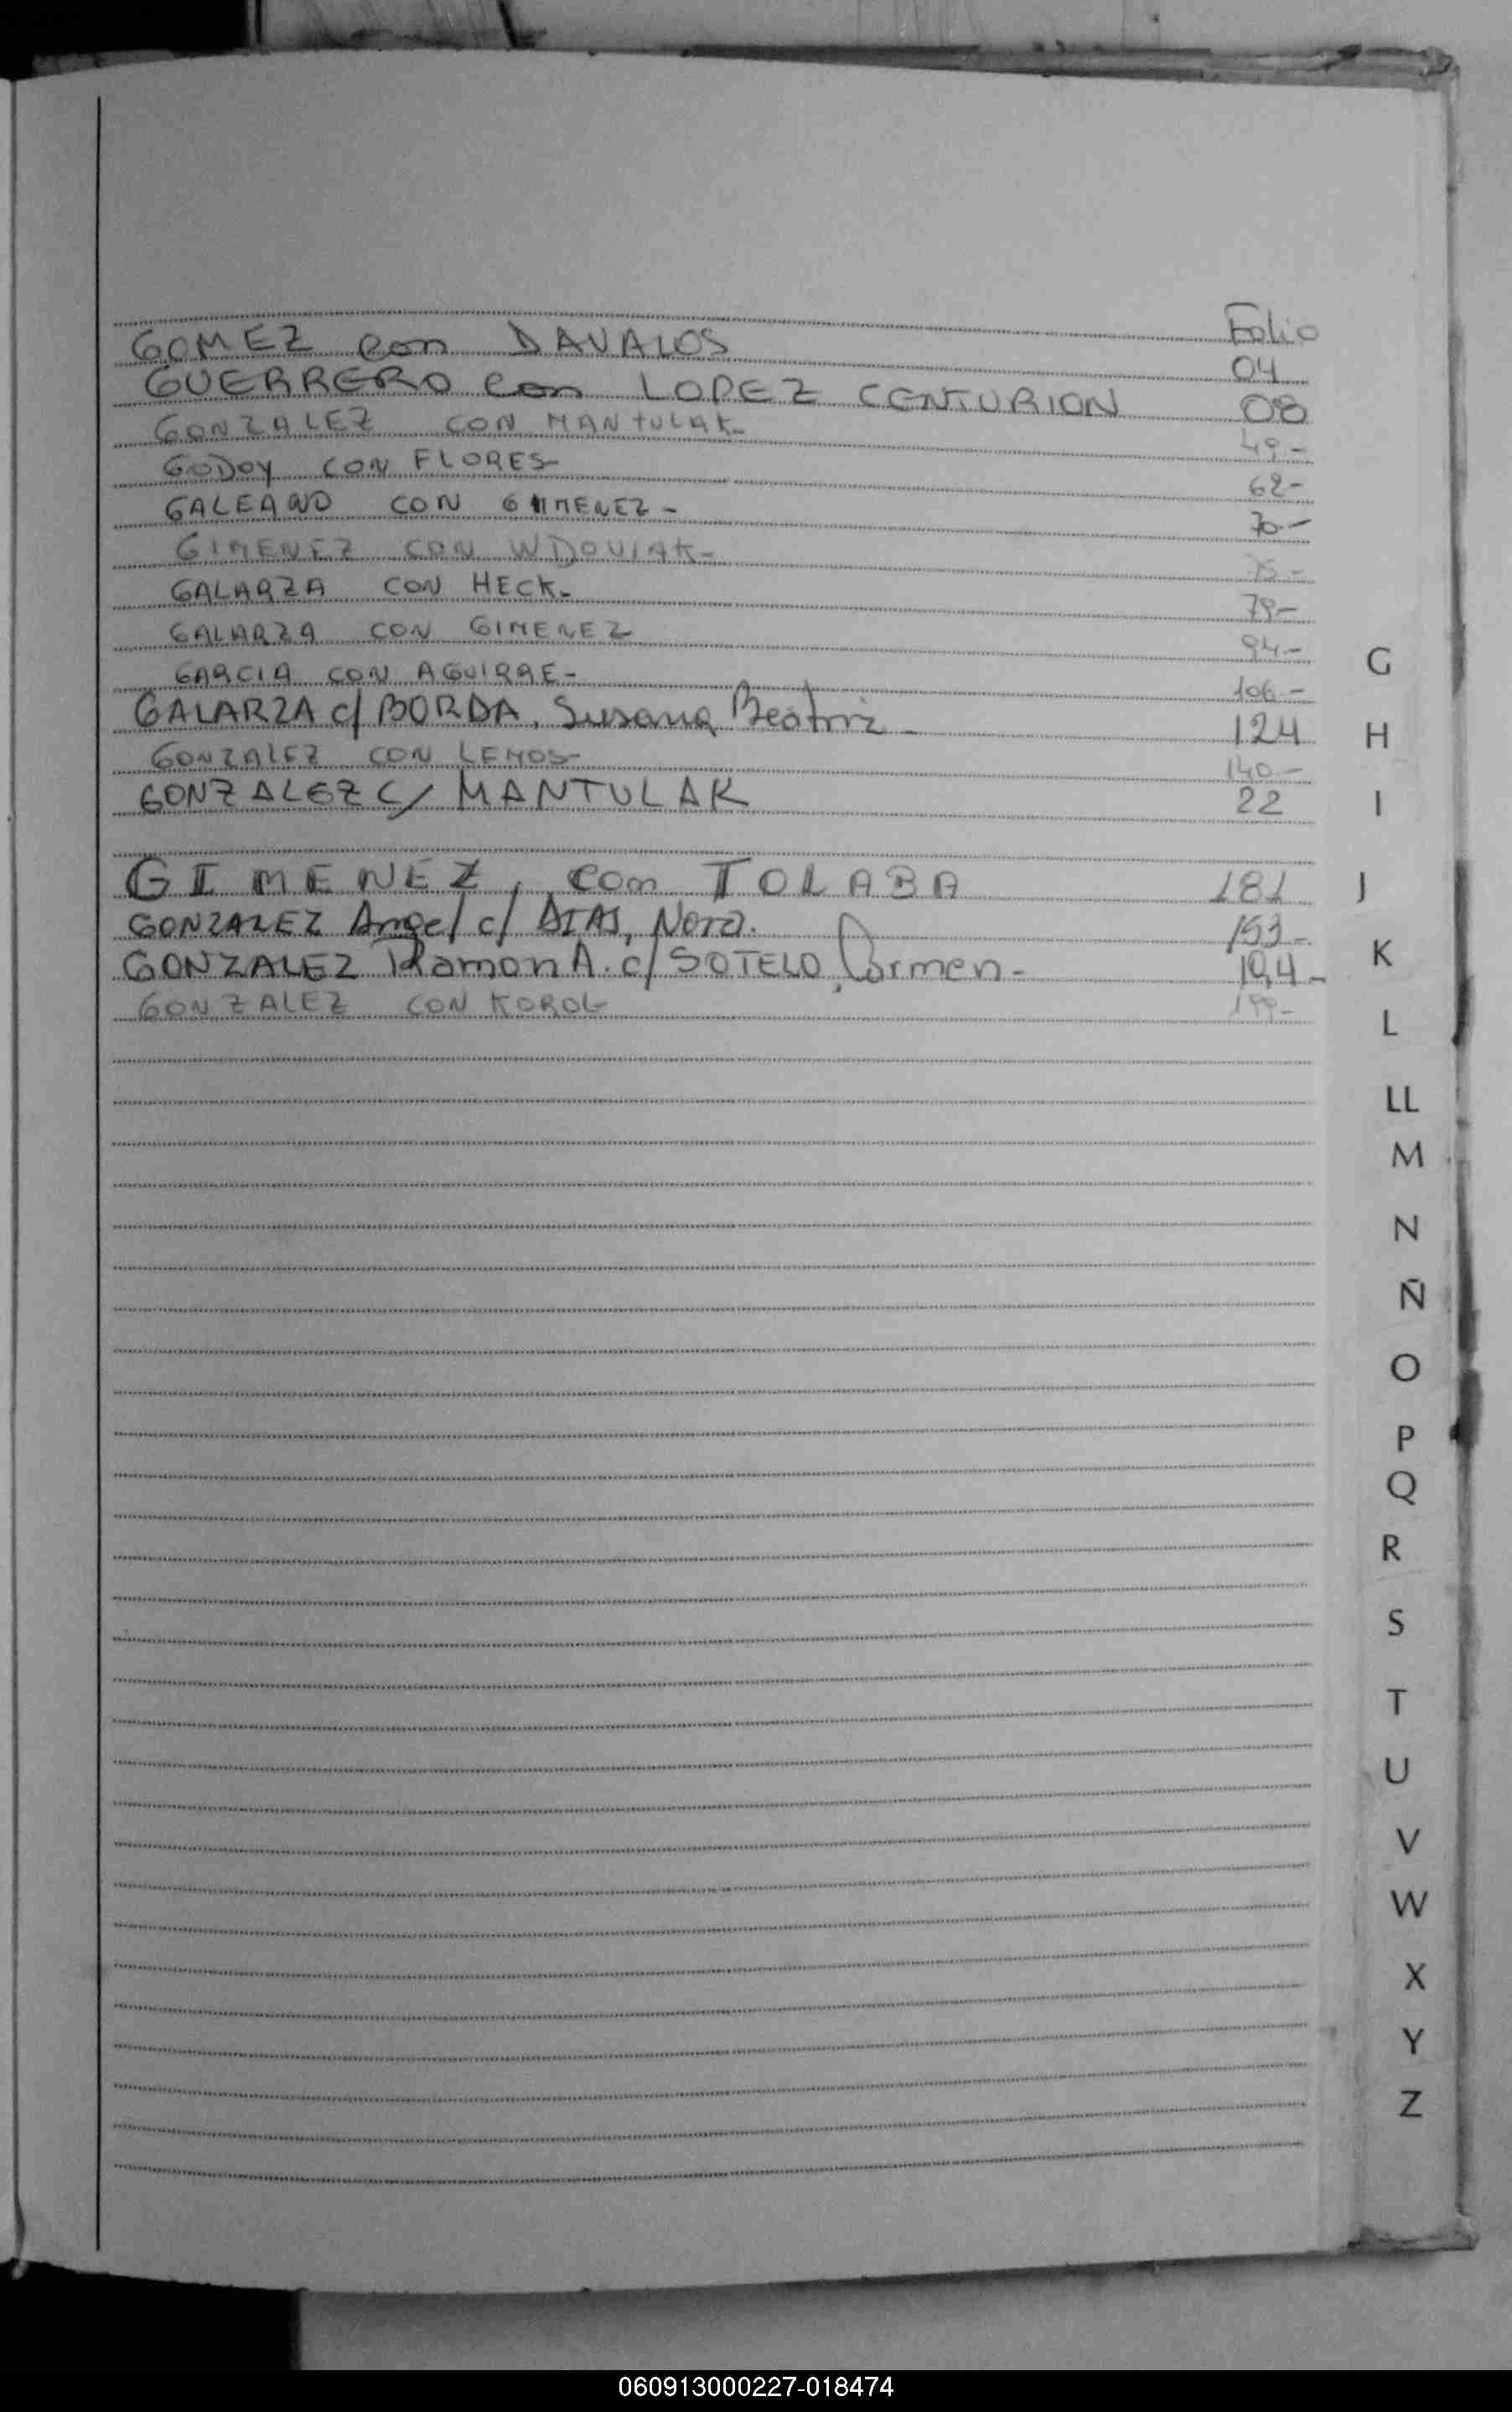 Folio
GOMEZ con DAVALOS 04
GUERRERO con LOPEZ CENTURION 08
GONZALEZ CON MANTULAK- 49.-
GODOY CON FLORES- 62-
GALEANO CON GIMENEZ- 70.-
GIMENEZ CON WDOVIAK- 75-
GALARZA CON HECK- 79-
GALARZA CON GIMENEZ 94.-
GARCIA CON AGUIRRE- 106.-
GALARZA c/ BORDA, Susana Beatriz- 124
GONZALEZ CON LEMOS- 140-
GONZALEZ C/ MANTULAK 22
GIMENEZ, con TOLABA 181
GONZALEZ Angel c/ DIAS, Nora. 153-
GONZALEZ Ramon A. c/ SOTELO, Carmen- 194-
GONZALEZ CON KOROL 199-
G
H
I
J
K
L
LL
M
N
Ñ
O
P
Q
R
S
T
U
V
W
X
Y
Z
060913000227-018474